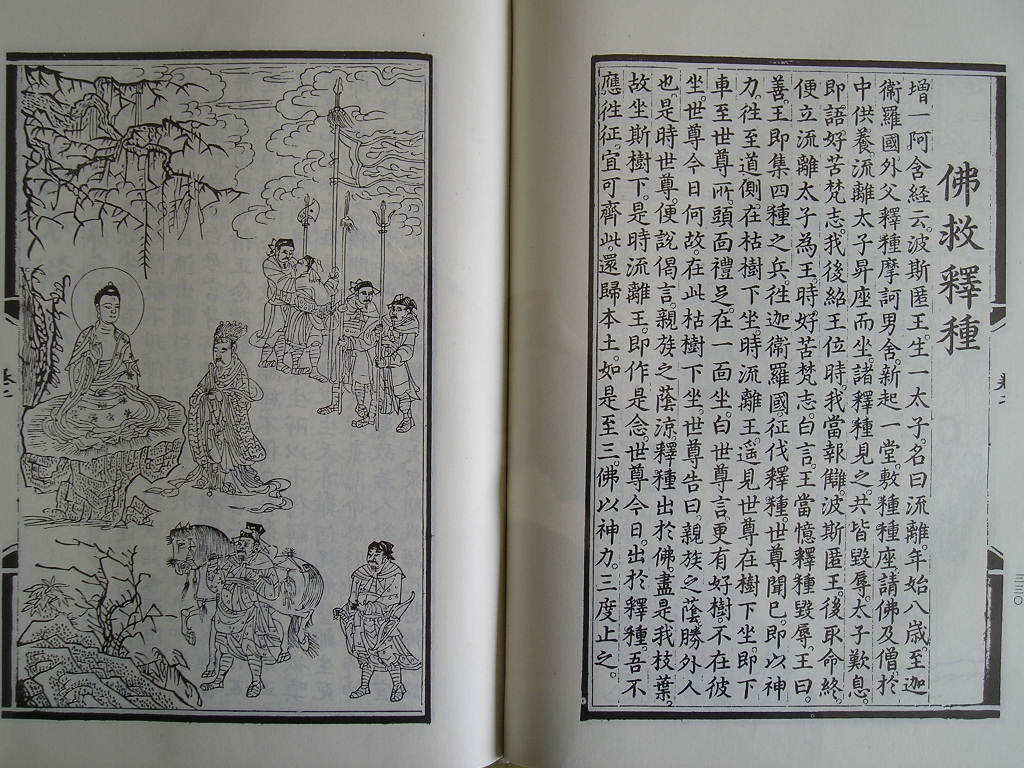 佛救釋種
增一阿含經云。波斯匿王。生一太子。名曰流離。年始八歲。至迦
衛羅國外父釋種摩訶男舍。新起一堂。敷種種座。請佛及僧於
中供養。流離太子昇座而坐。諸釋種見之。共皆毀辱。太子歎息。
即語好苦梵志。我後紹王位時。我當報讎。波斯匿王。後取命終。
便立流離太子為王。時好苦梵志。白言。王當憶釋種毀辱。王曰。
善。王即集四種之兵。往迦衛羅國。征伐釋種。世尊聞已。即以神
力。往至道側。在枯樹下坐。時流離王。遙見世尊在樹下坐。即下
車至世尊所。頭面禮足。在一面坐。白世尊言。更有好樹。不在彼
坐。世尊今日何故。在此枯樹下坐。世尊告曰。親族之蔭。勝外人
也。是時世尊。便說偈言。親族之蔭涼。釋種出於佛。盡是我枝葉。
故坐斯樹下。是時流離王。即作是念。世尊今日。出於釋種。吾不
應往征。宜可齊此。還歸本土。如是至三。佛以神力。三度止之。
三三〇